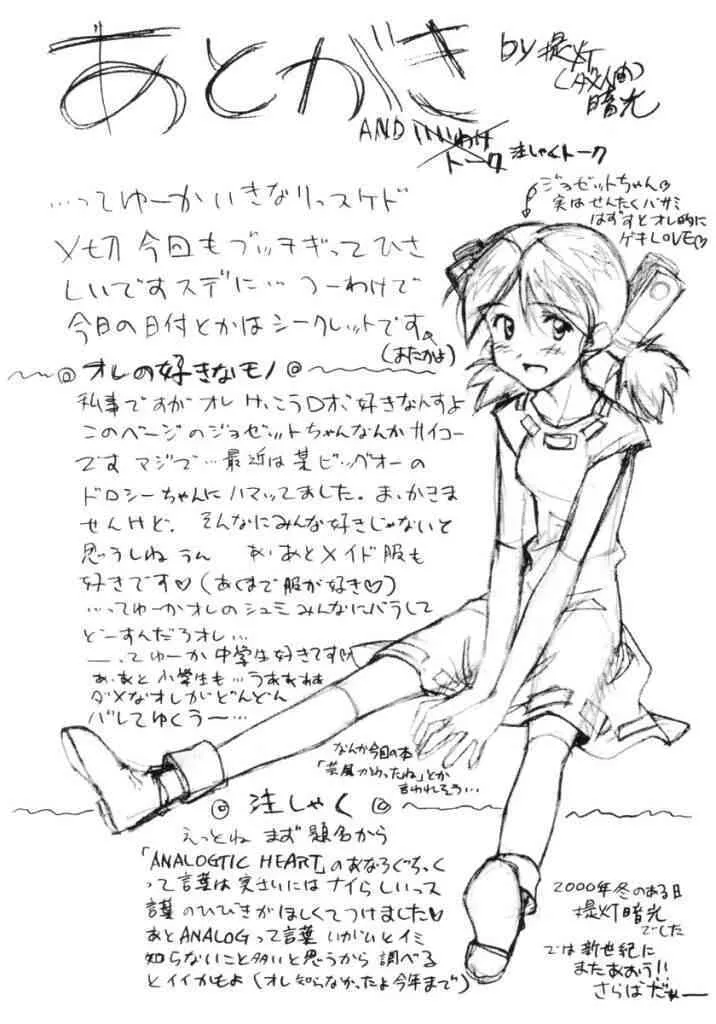 あとがき
by 提灯
(ダメ人間)
暗光
AND いいわけ
トーク 注しゃくトーク
ジョゼットちゃん♡
実はせんたくバサミ
はずすとオレ的に
ゲキLOVE♡
…ってゆーか いきなりっスケド
〆切 今回もブッチギってひさ
しいです スデに… つーわけで
今日の日付とかはシークレットです。
(おたがよ)
◎オレの好きなモノ◎
私事ですが オレ けっこうロボ好きなんすよ
このページのジョゼットちゃんなんかサイコー
です マジで… 最近は某ビッグオーの
ドロシーちゃんにハマッてました。ま、かきま
せんけど。 そんなにみんな好きじゃないと
思うしね うん あ、あとメイド服も
好きです♡(あくまで服が好き♡)
…ってゆーかオレのシュミみんなにバラして
どーすんだろオレ…
――ってゆーか 中学生好きです♡
あ、あと 小学生も…うああああ
ダメなオレがどんどん
バレてゆくぅ〜…
なんか今回の本
「芸風かわったね」とか
言われそう…
◎ 注しゃく ◎
えっとね まず 題名から
「ANALOGTIC HEART」のあなろぐちっく
って言葉は実さいにはナイらしいっス
言葉のひびきがほしくてつけました♡
あとANALOGって言葉 いがいとイミ
知らないこと多いと思うから 調べる
とイイかもよ(オレ知らなかったよ今年まで)
2000年冬のある日
提灯暗光
でした
では新世紀に
またあおう!!
さらばだぁー